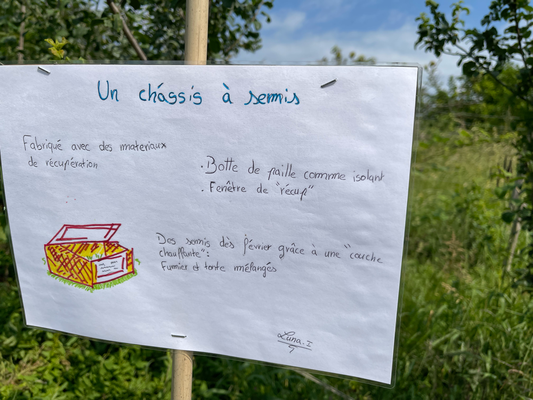 Un châssis à semis
Fabriqué avec des materiaux
de récupération
. Botte de paille comme isolant
. Fenêtre de "récup"
Des semis dès février grâce à une "couche
chauffante":
Fumier et tonte mélangés
Luna.I